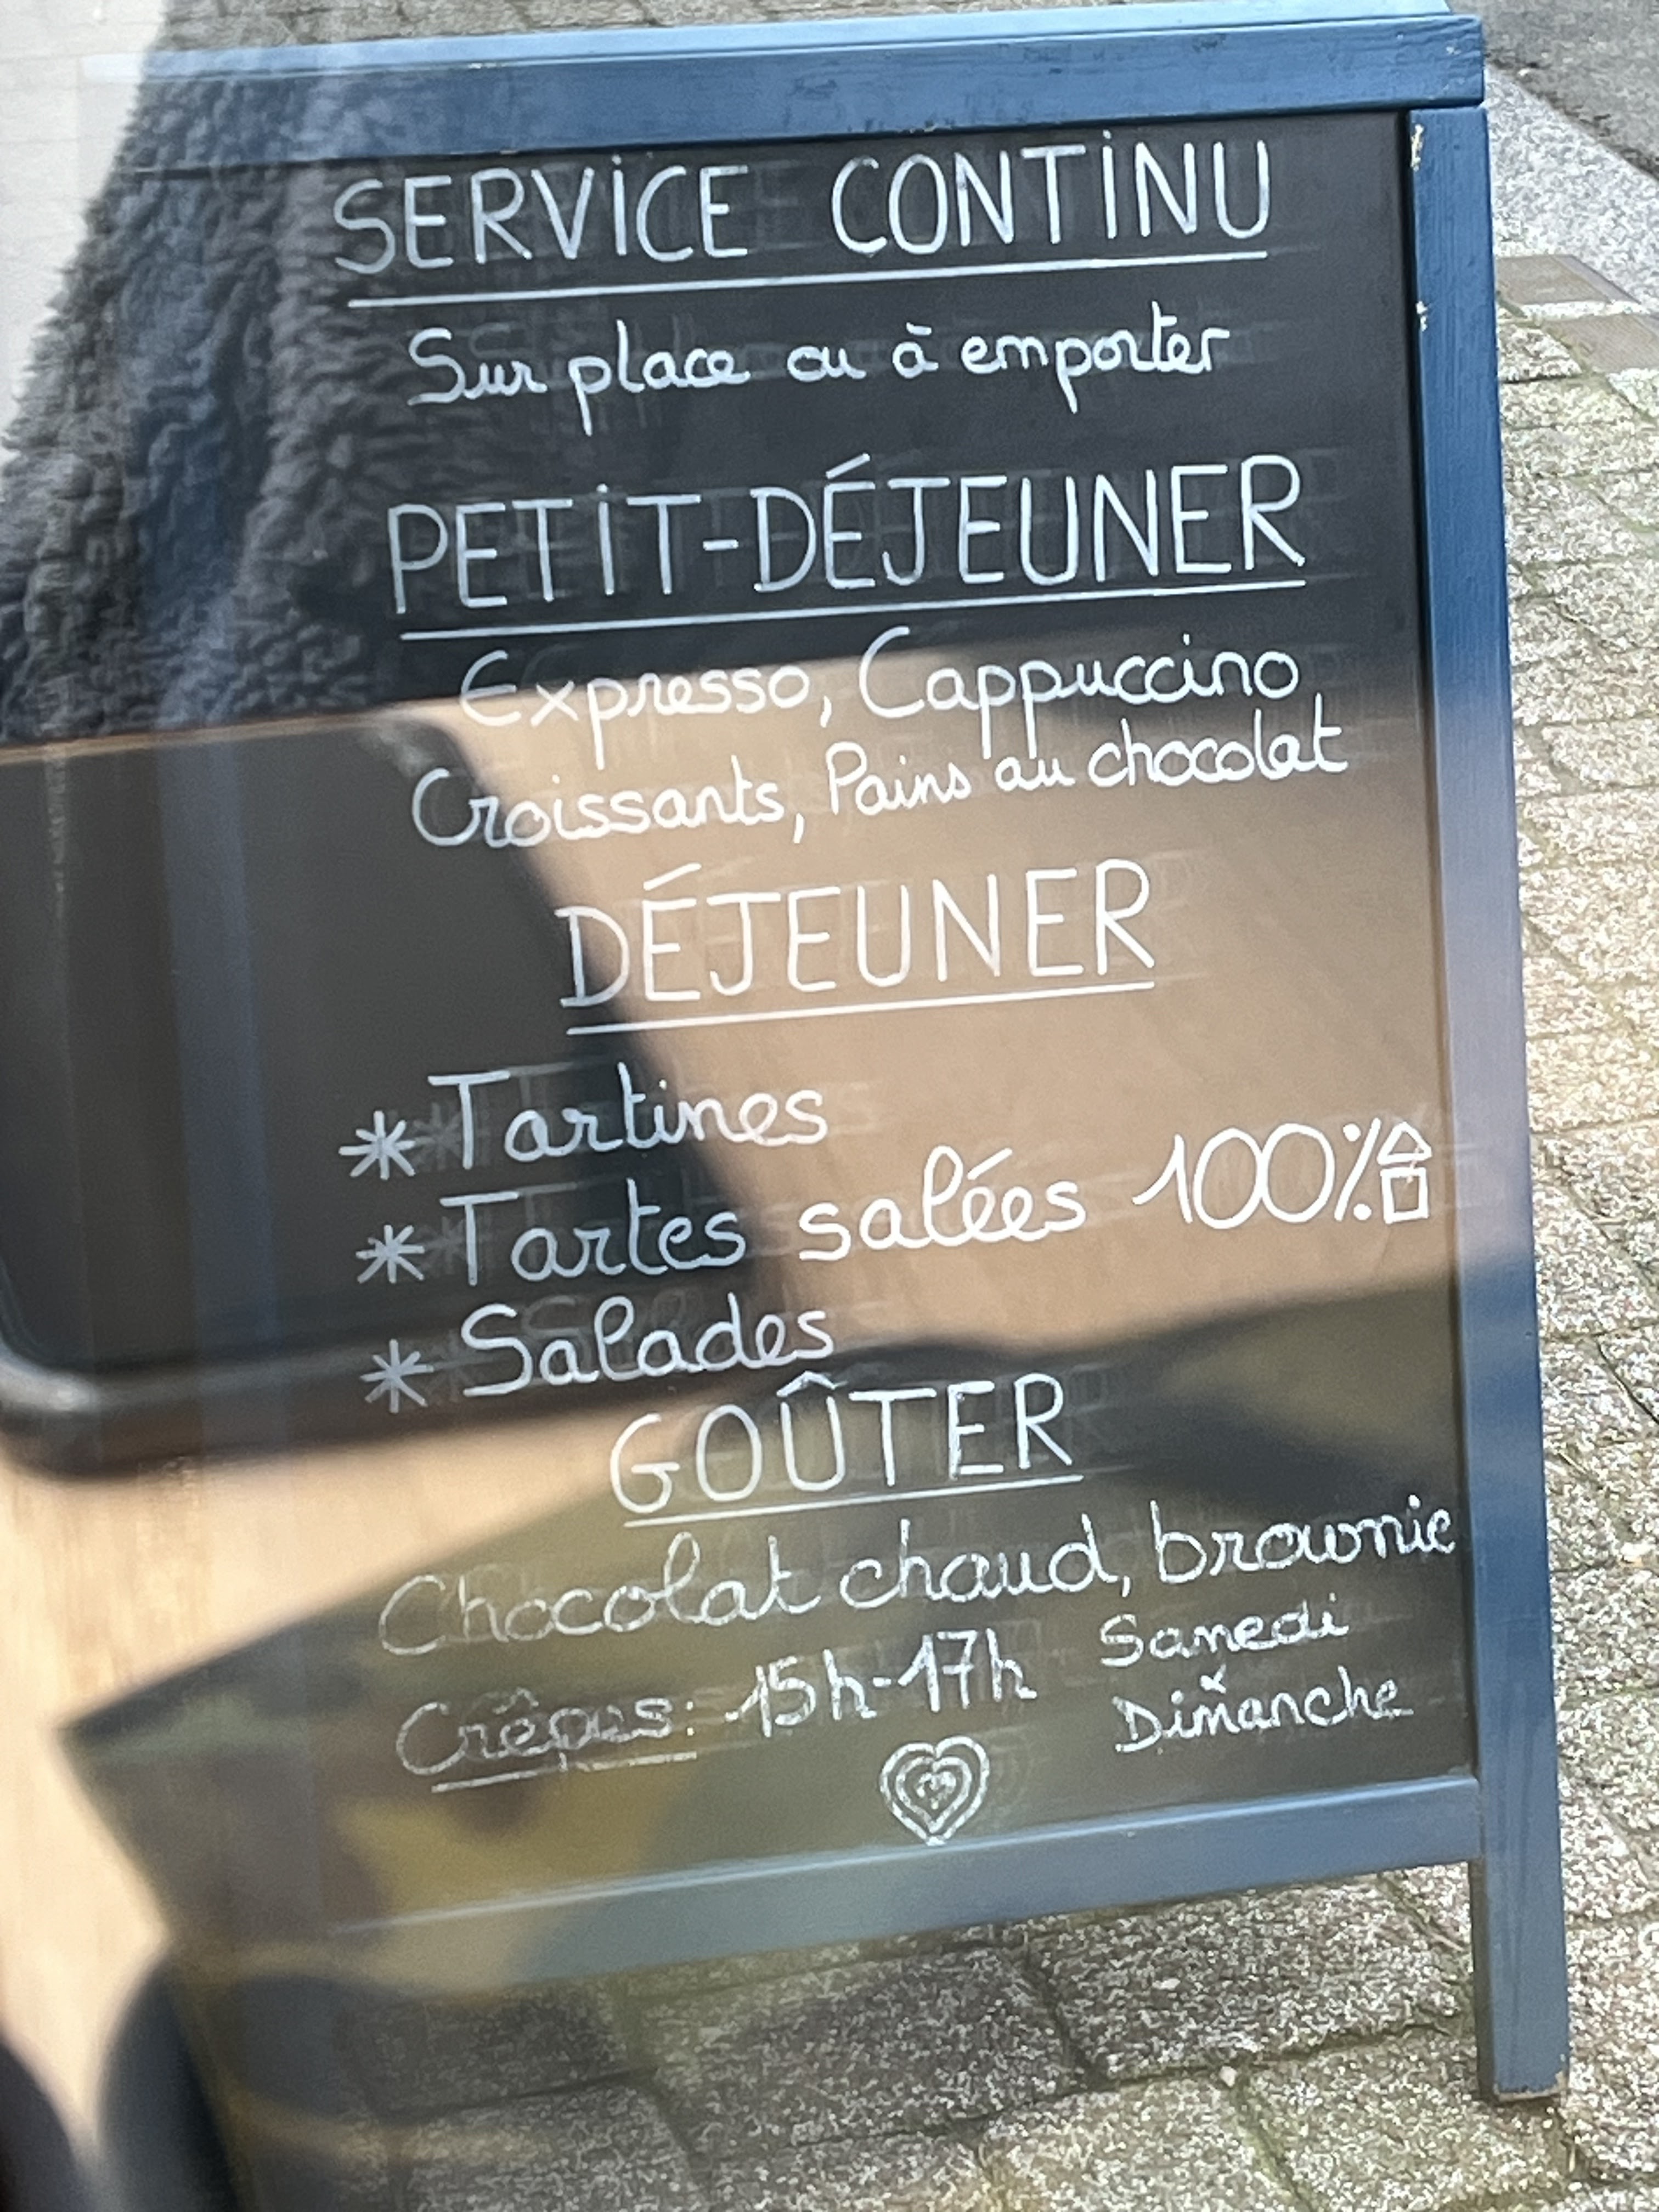 SERVICE CONTINU
Sur place ou à emporter
PETIT-DÉJEUNER
Expresso, Cappuccino
Croissants, Pains au chocolat
DÉJEUNER
* Tartines
* Tartes salées 100%
* Salades
GOÛTER
Chocolat chaud, brownie
Crêpes: 15h-17h Samedi
Dimanche